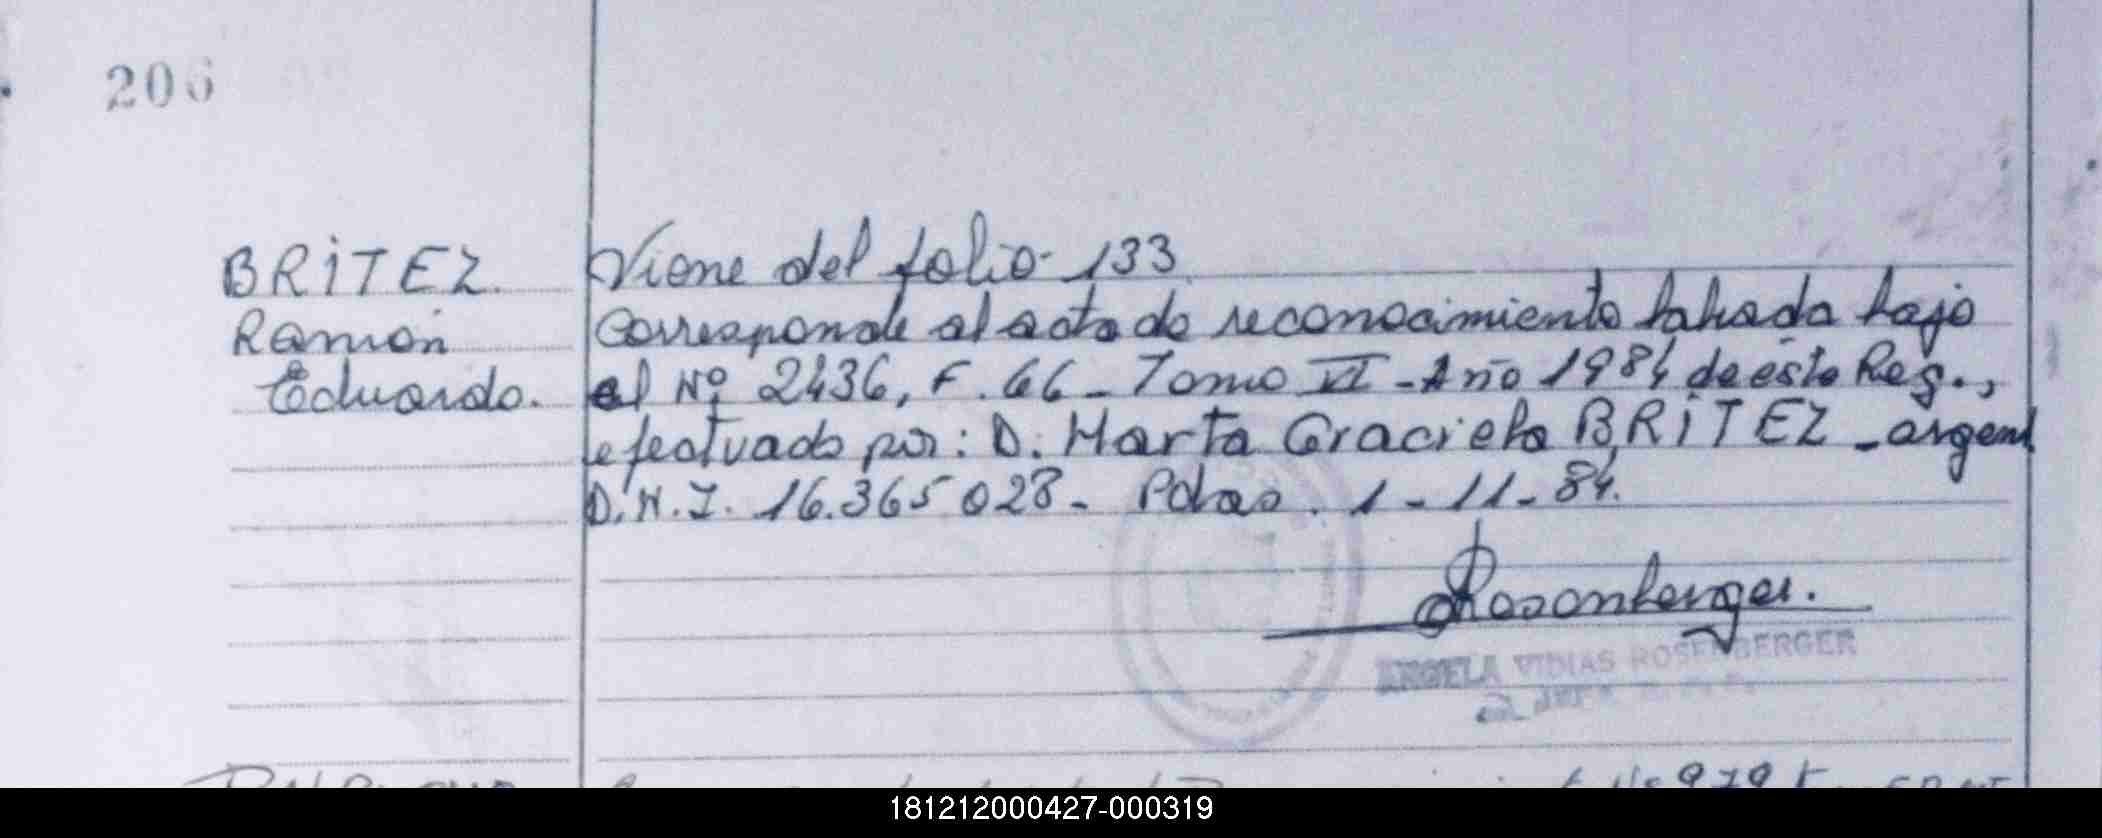 206
BRITEZ. Viene del folio 133
Ramón Corresponde al acta de reconocimiento labrada bajo
Eduardo. el Nº 2436, F. 66 - Tomo VI - Año 1984 de este Reg.,
efectuado por: D. Marta Graciela BRITEZ - argent
D.N.I. 16.365028 - Pdas. 1-11-84.
Rosenberger.
ANGELA VIDIAS ROSENBERGER
181212000427-000319